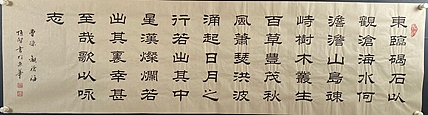 東臨碣石以
觀滄海水何
澹澹山島竦
峙樹木叢生
百草豐茂秋
風蕭瑟洪波
涌起日月之
行若出其中
星漢燦爛若
出其裏幸甚
至哉歌以咏
志
曹操 觀滄海